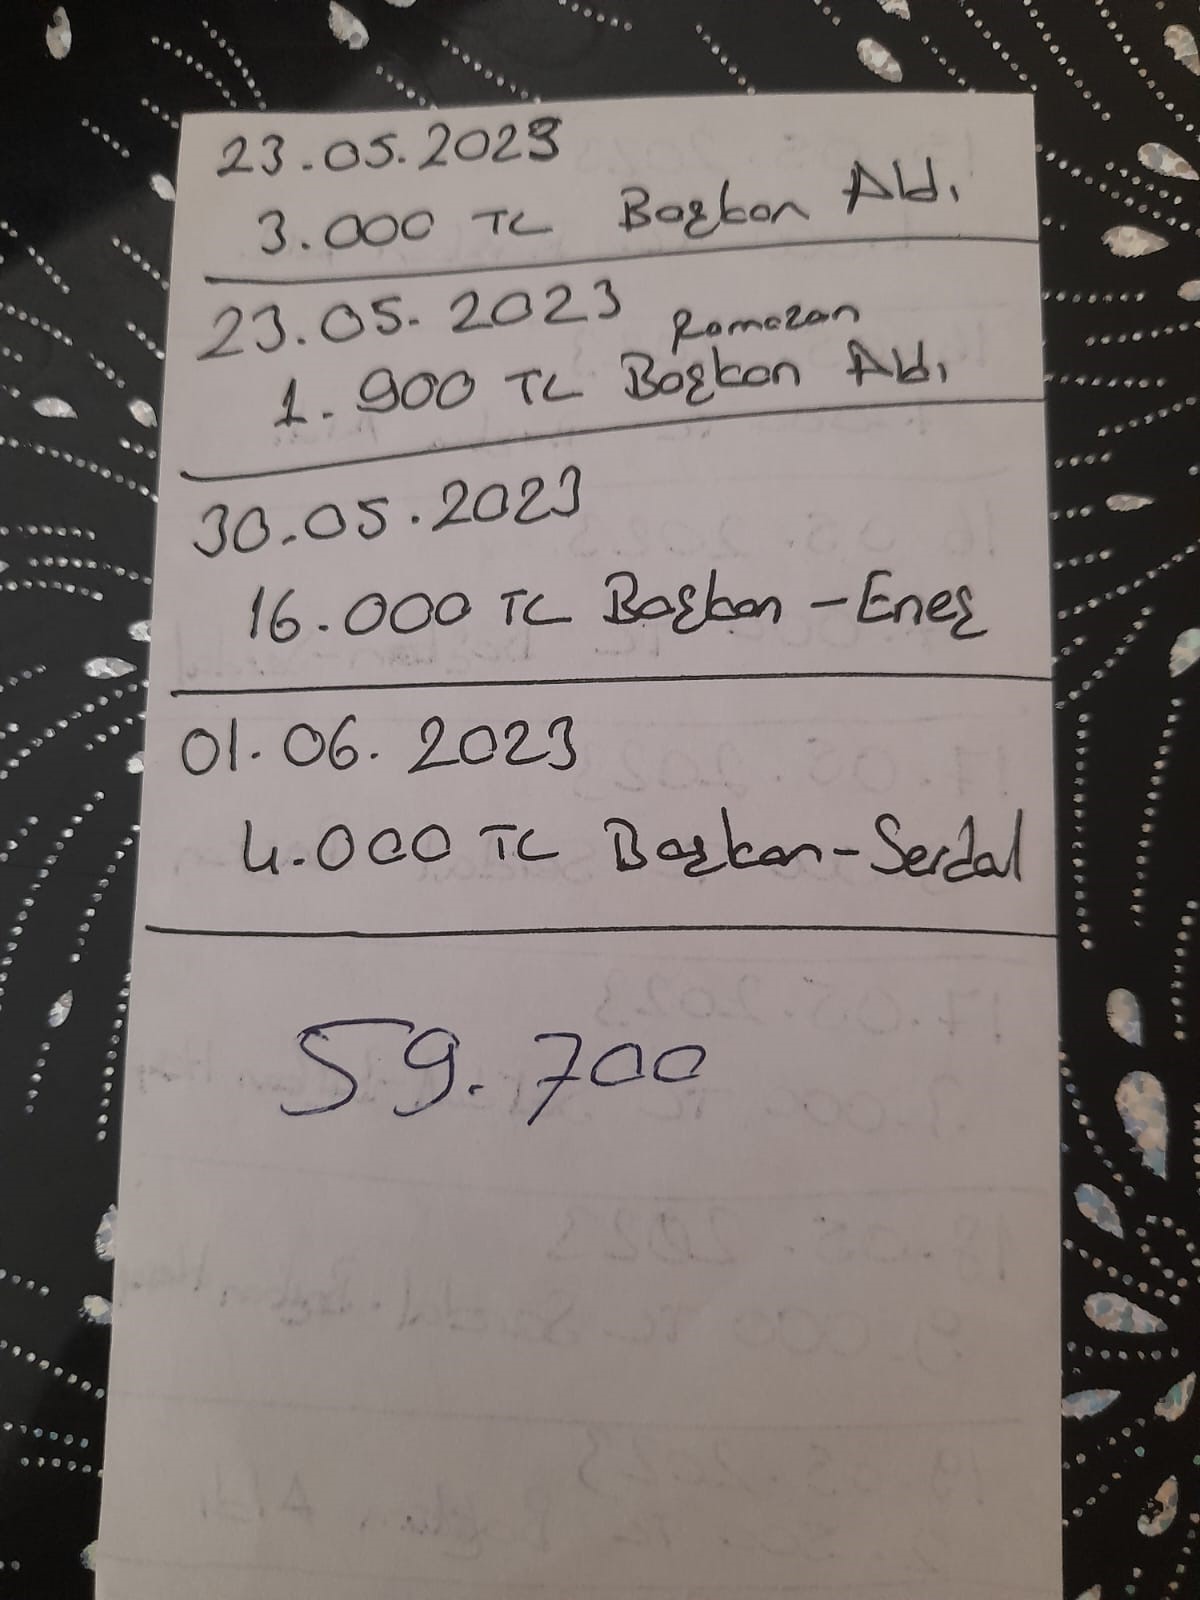 23.05.2023
3.000 TL Başkan Aldı
23.05.2023 Ramazan
1.900 TL Başkan Aldı
30.05.2023
16.000 TL Başkan - Eneş
01.06.2023
4.000 TL Başkan - Serdal
59.700